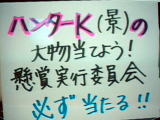 ハンターK(景)の
大物当てよう!
懸賞実行委員会
必ず当たる!!